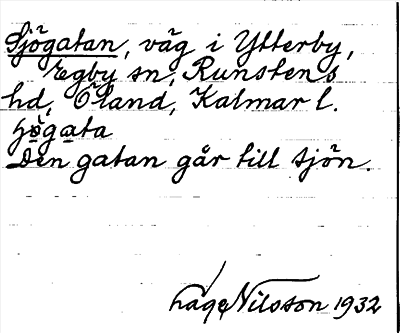 Sjögatan, väg i Ytterby,
Egby sn, Runstens
hd, Öland, Kalmar l.
Den gatan går till sjön.
Nilsson 1932